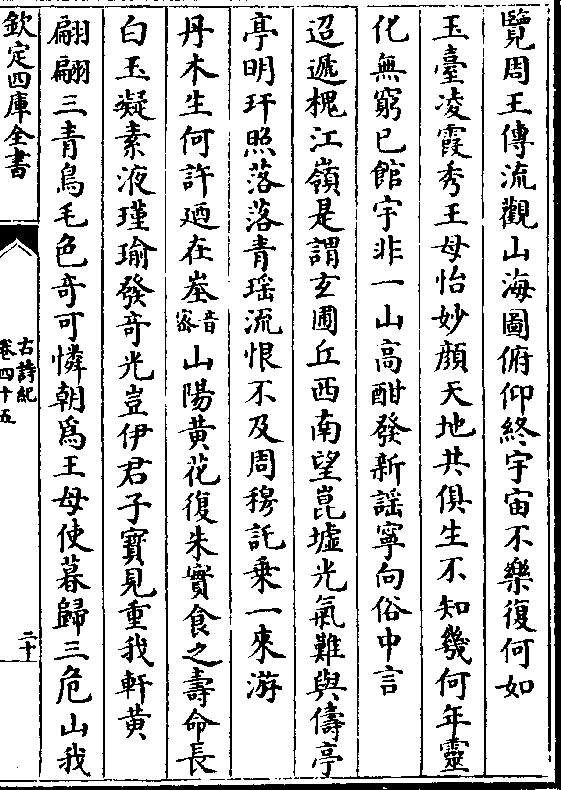 覽周王傳流觀山海圖俯仰終宇宙不樂復何如
玉臺凌霞秀王母怡妙顔天地共俱生不知幾何年靈
化無窮已館宇非一山高酣發新謡寧向俗中言
迢遞槐江嶺是謂玄圃丘西南望崑墟光氣難與儔亭
亭明玕照落落青瑶流恨不及周穆託乗一來游
丹木生何許廼在峚音宻山陽黄花復朱實食之壽命長
白玉凝素液瑾瑜發竒光豈伊君子寳見重我軒黄
翩翩三青鳥毛色竒可憐朝爲王母使暮歸三危山我
欽定四庫全書
古詩紀
卷四十五
二十